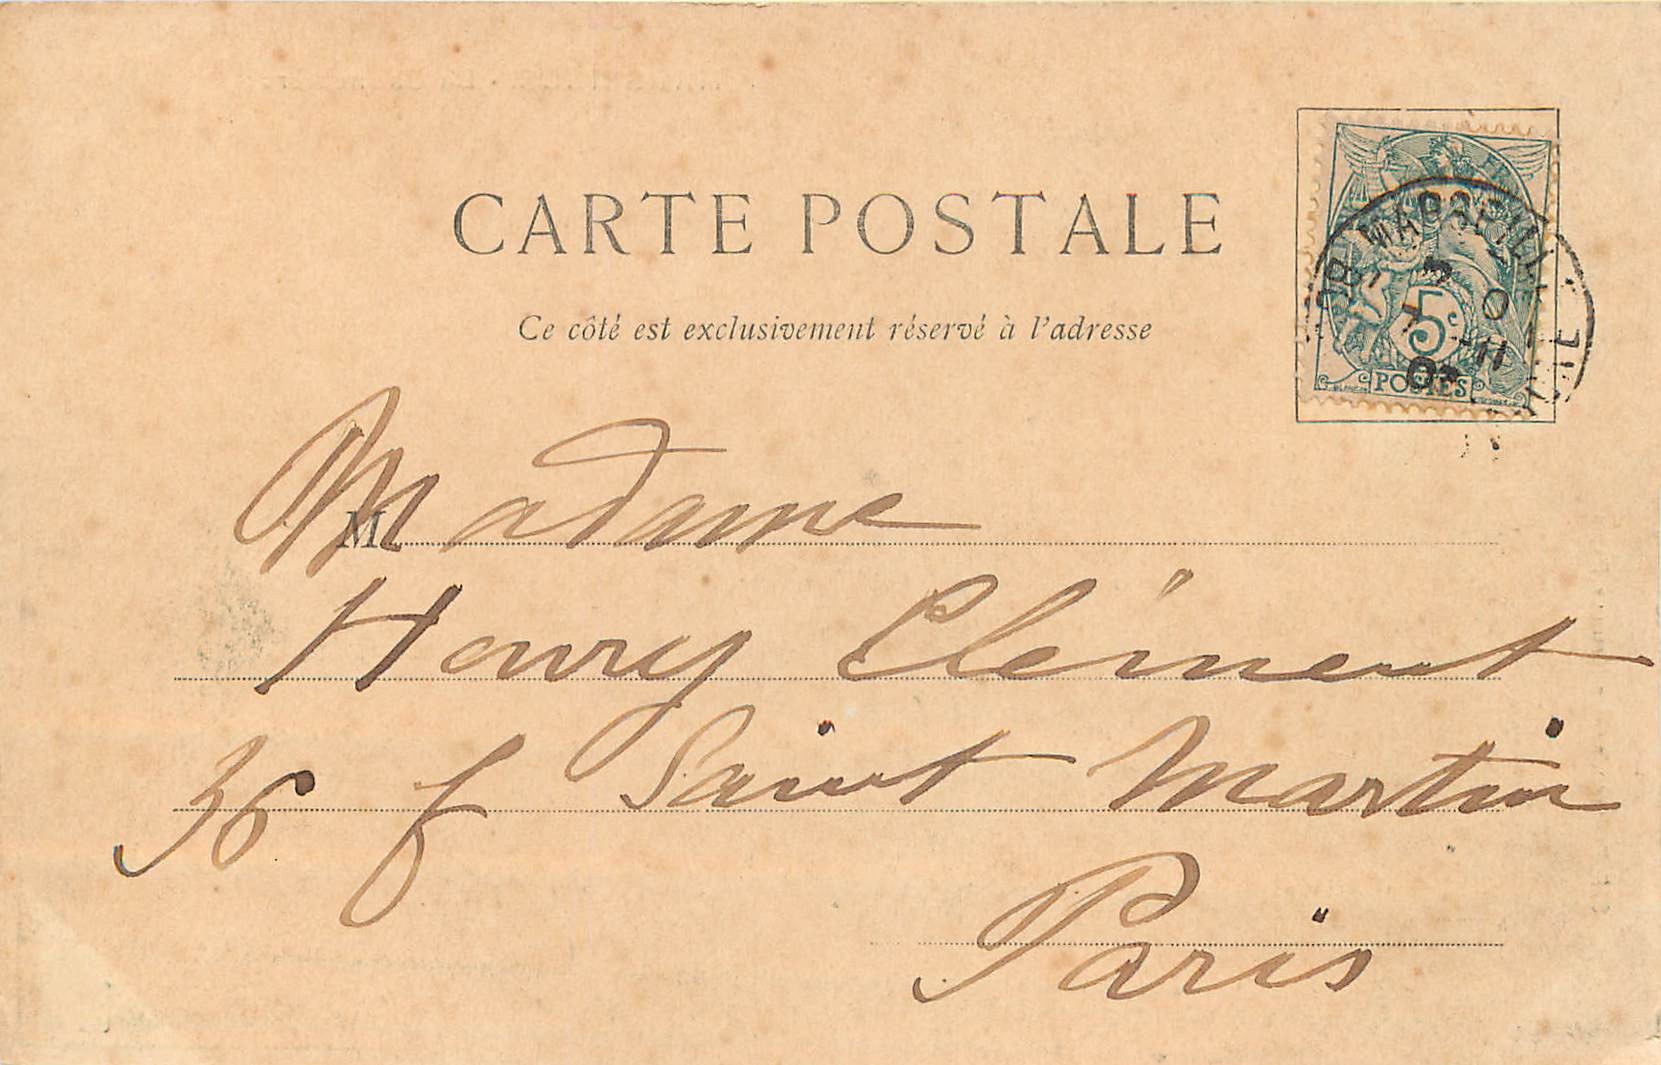 CARTE POSTALE
Ce côté est exclusivement réservé à l'adresse
MARSEILLE
5c
POSTES
Madame
M
Henry Clément
36 f Saint Martin
Paris